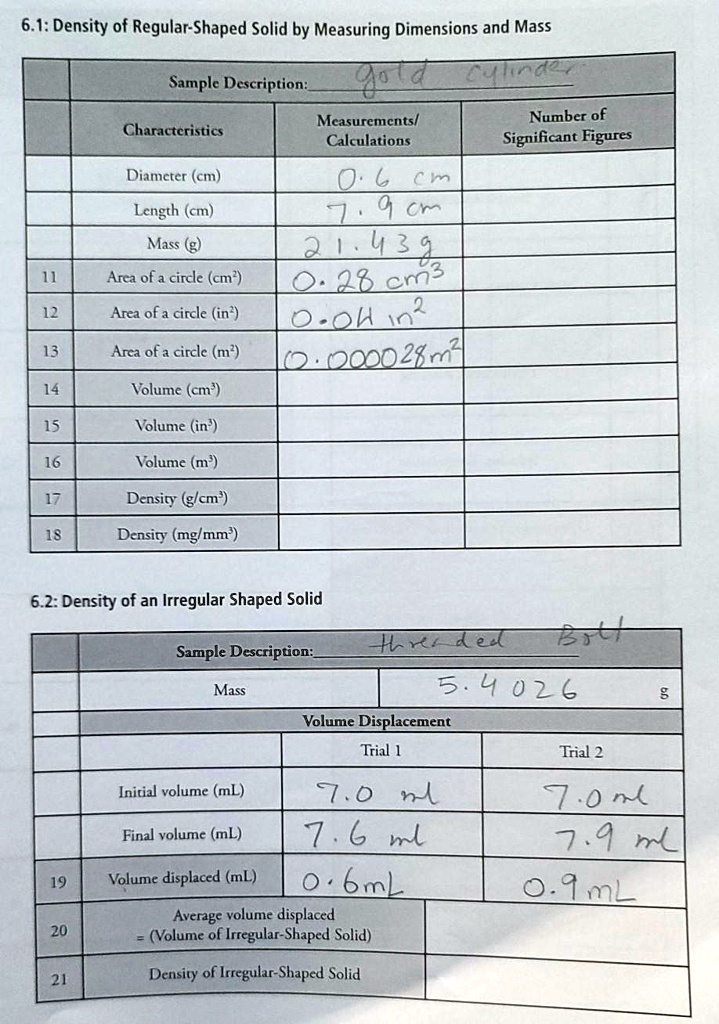 6.1: Density of Regular-Shaped Solid by Measuring Dimensions and Mass
Sample Description: gold cylinder
Characteristics Measurements/ Calculations Number of Significant Figures
Diameter (cm) 0.6 cm
Length (cm) 7.9 cm
Mass (g) 21.43g
11 Area of a circle (cm²) 0.28 cm³
12 Area of a circle (in²) 0.04 in²
13 Area of a circle (m²) 0.000028m²
14 Volume (cm³)
15 Volume (in³)
16 Volume (m³)
17 Density (g/cm³)
18 Density (mg/mm³)
6.2: Density of an Irregular Shaped Solid
Sample Description: threaded Bolt
Mass 5.4026 g
Volume Displacement
Trial 1 Trial 2
Initial volume (mL) 7.0 ml 7.0 ml
Final volume (mL) 7.6 ml 7.9 ml
19 Volume displaced (mL) 0.6mL 0.9 mL
20 Average volume displaced
= (Volume of Irregular-Shaped Solid)
21 Density of Irregular-Shaped Solid